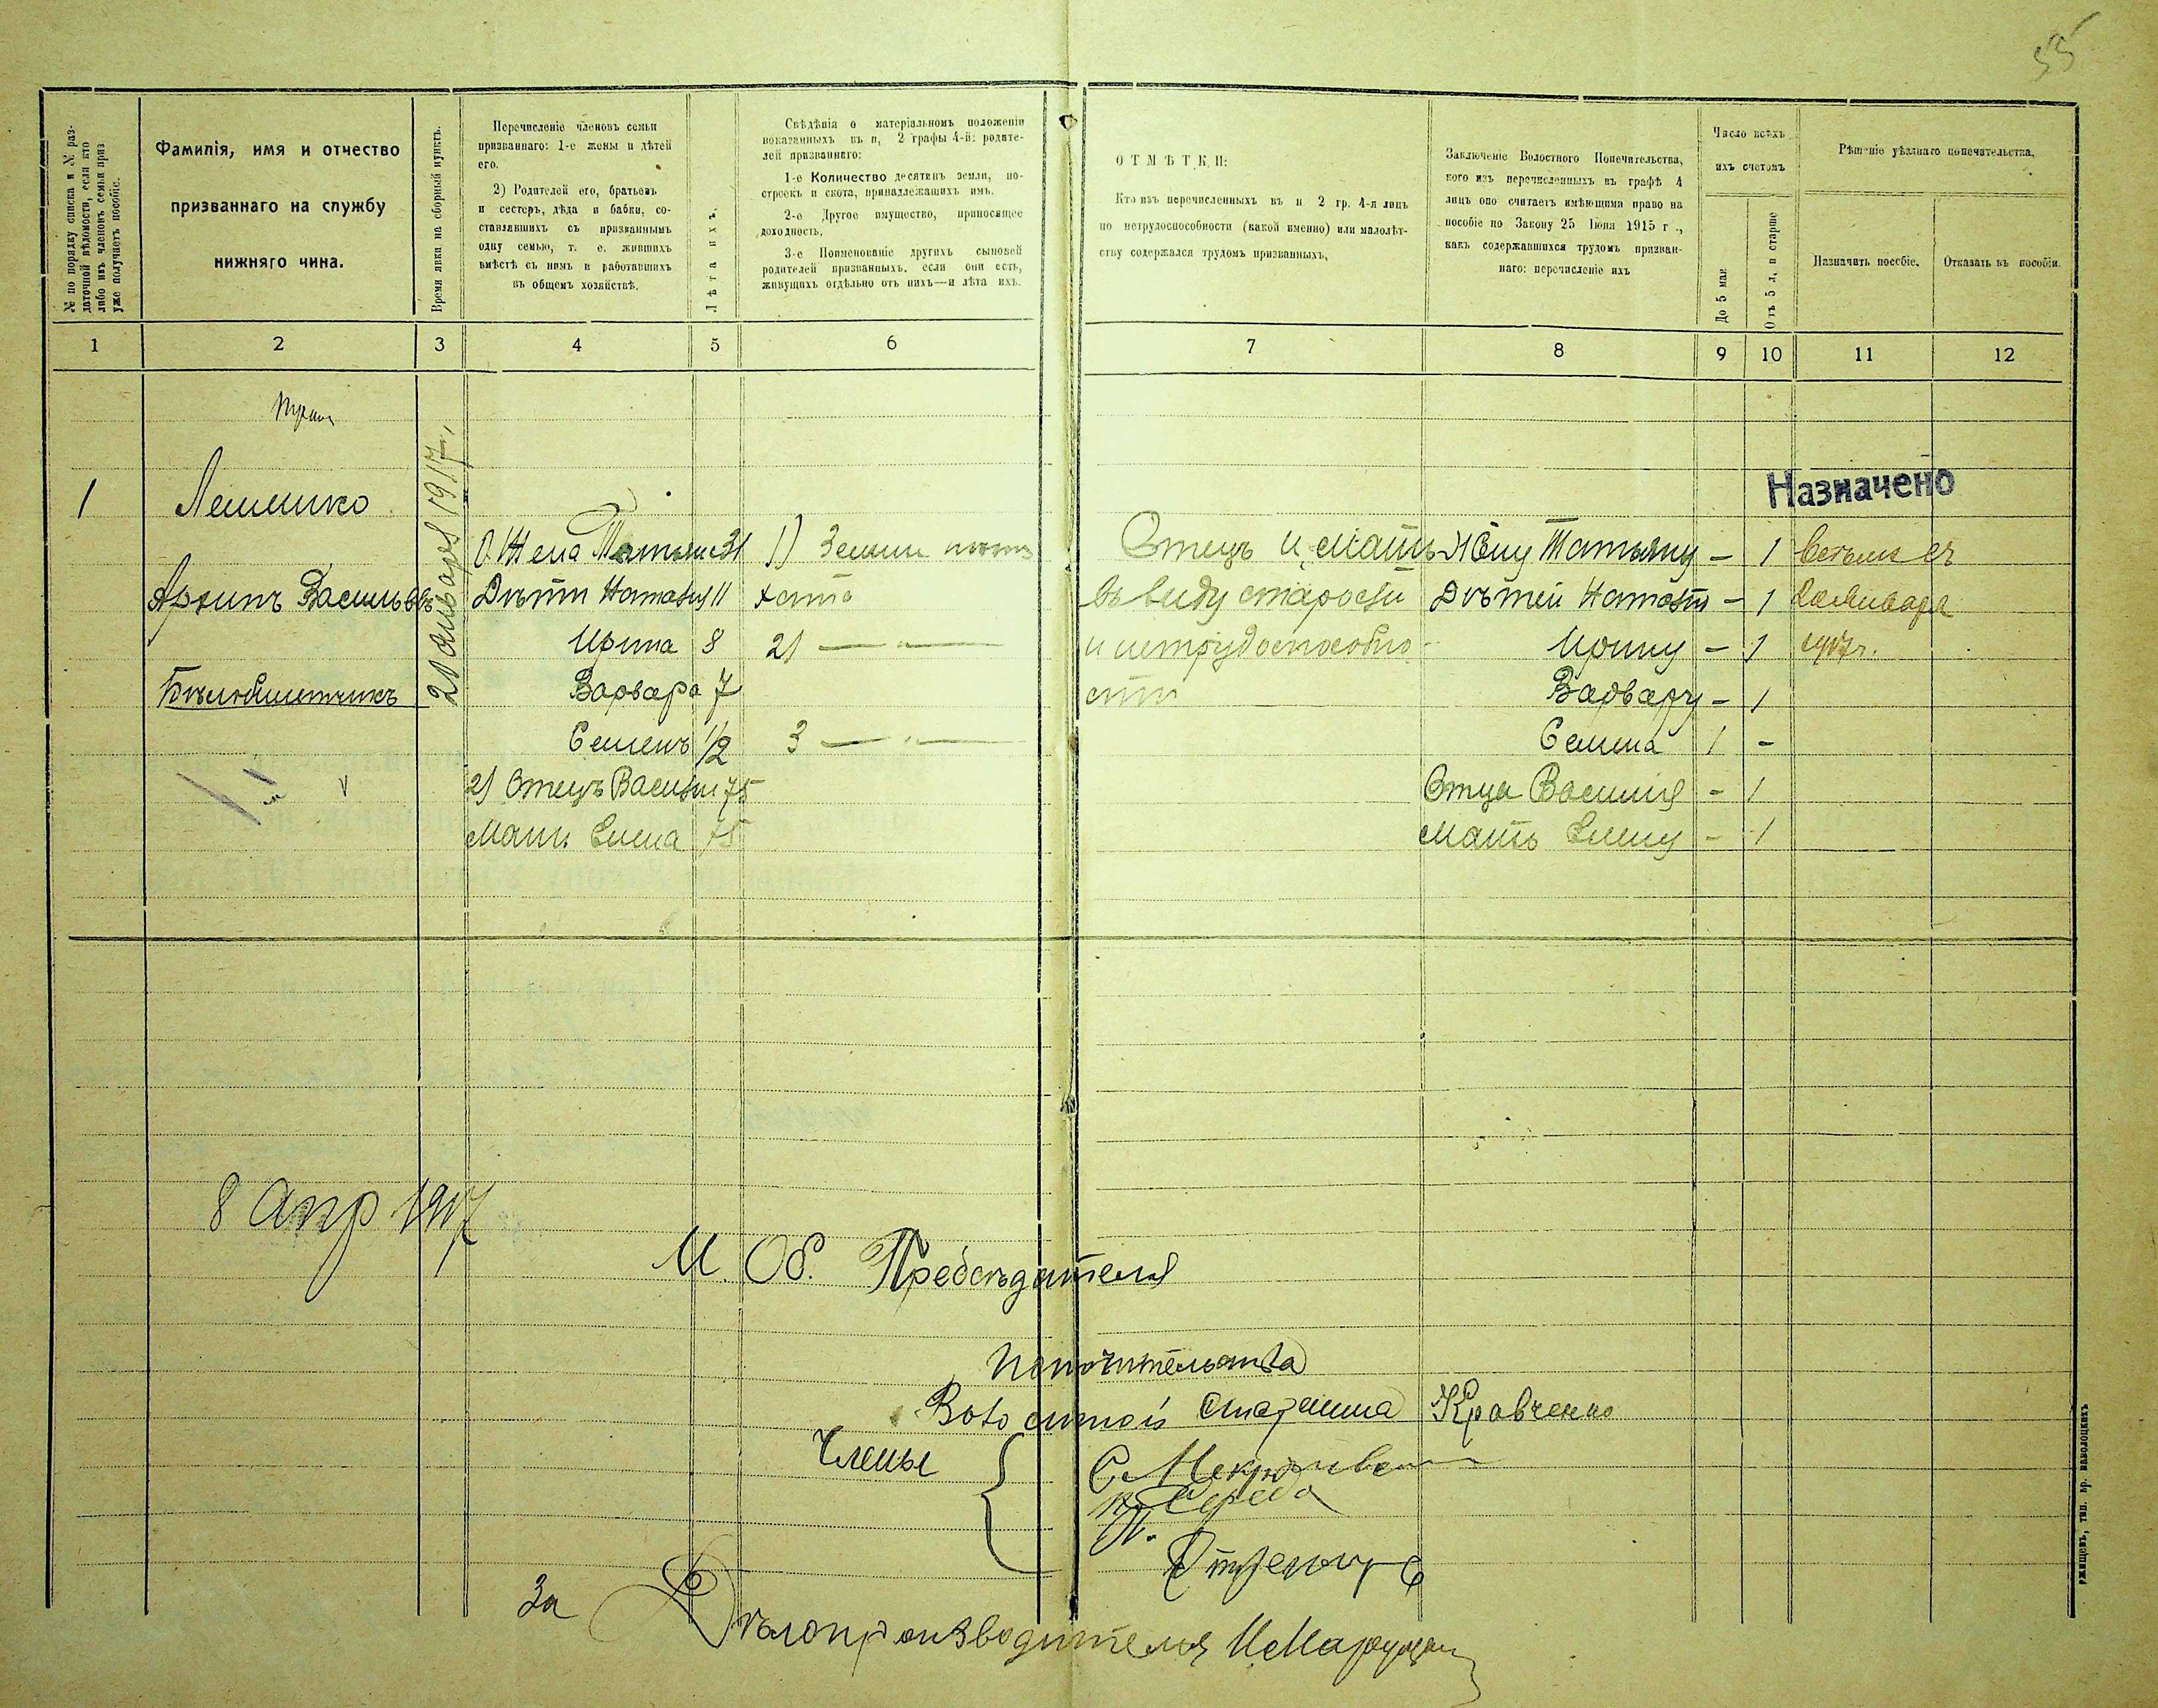 55
№ по порядку списка и № раз-
даточной вѣдомости, если кто
либо изъ членовъ семьи приз.
уже получаетъ пособіе.
Фамилія, имя и отчество
призваннаго на службу
нижняго чина.
Время явки на сборный пунктъ.
Перечисленіе членовъ семьи
призваннаго: 1-е жены и дѣтей
его.
2) Родителей его, братьевъ
и сестеръ, дѣда и бабки, со-
ставлявшихъ съ призваннымъ
одну семью, т. е. жившихъ
вмѣстѣ съ нимъ и работавшихъ
въ общемъ хозяйствѣ.
Лѣта ихъ.
Свѣдѣнія о матеріальномъ положеніи
показанныхъ въ п, 2 графы 4-й: родите-
лей призваннаго:
1-е Количество десятинъ земли, по-
строекъ и скота, принадлежащихъ имъ.
2-е Другое имущество, приносящее
доходность,
3-е Поименованіе другихъ сыновей
родителей призванныхъ, если они есть,
живущихъ отдѣльно отъ нихъ—и лѣта ихъ.
ОТМѢТКИ:
Кто изъ перечисленныхъ въ п 2 гр. 4-я лицъ
по нетрудоспособности (какой именно) или малолѣт-
ству содержался трудомъ призванныхъ,
Заключеніе Волостного Попечительства,
кого изъ перечисленныхъ въ графѣ 4
лицъ оно считаетъ имѣющими право на
пособіе по Закону 25 Іюня 1915 г.,
какъ содержавшихся трудомъ призван-
наго: перечисленіе ихъ
Число всѣхъ
ихъ счетовъ
До 5 мая
Отъ 5 л, и старше
Рѣшеніе уѣзднаго попечательства,
Назначить пособіе.
Отказать въ пособіи.
1 2 3 4 5 6 7 8 9 10 11 12
Назначено
1 Лешшко
21 января 1917 г.
1) Жена Татьяна 31 1) Земли Отецъ и мать Жену Татьяну — 1
Архипъ Васильевъ Дѣти Наталія 11 хата въ виду старости Дѣтей Наталію — 1 Января
Ирина 8 2) — " — и нетрудоспособно- Ирину — 1 1917 г.
Бѣлобилетчикъ Варвара 7 сти Варвару — 1
Семенъ 1/2 3 — " — Семена 1 —
2) Отецъ Василій 75 Отца Василія — 1
Мать Елена 75 Мать Елену — 1
8 Апр 1917
И. Об. Предсѣдателя
Попечительства
Волостной старшина Кравченко
Члены
Середа
За Дѣлопроизводителя
ржищевъ, тип. бр. наволоцкихъ